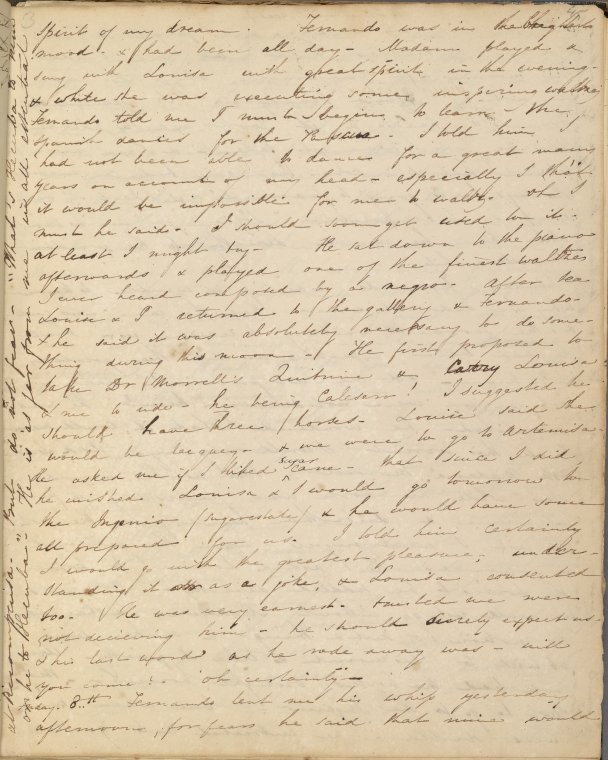 spirit of my dream. Fernando was in the brightest
mood - & had been all day - Madam played &
sung with Louisa with great spirit in the evening -
& while she was executing some inspiring waltzes
Fernando told me I must begin to learn the
Spanish dances for the Pascua. I told him I
had not been able to dance for a great many
years on account of my head - especially I that
it would be impossible for me to waltz. oh I
must he said. I should soon get used to it -
at least I might try - He sat down to the piano
afterwards & played one of the finest waltzes
I ever heard composed by a negro - After tea
Louise & I returned to the gallery & Fernando -
& he said it was absolutely necessary to do some-
thing during this moon - He first proposed to
take Dr Morrell's Quitrine & carry Louisa
& me to ride - he being Calesero! I suggested he
should have three horses - Louise said she
would be lacquey - & we were to go to Artemisa -
He asked me if I liked sugar cane - that since I did
he wished Louisa & I would go tomorrow to
the Ingenio (sugar estate) & he would have some
all prepared for us. I told him certainly
I would go with the greatest pleasure, under-
standing it as a joke, & Louisa consented
too. He was very earnest - trusted we were
not decieving him - he should surely expect us -
& his last word as he rode away was - will
you come? - oh certainly -
day. 8th Fernando lent me his whip yesterday
afternoon, for fear he said that mine would
at Recompensa - But do not fear - "What is Hecuba to him
or he to Hecuba" He is as far from me in all essential